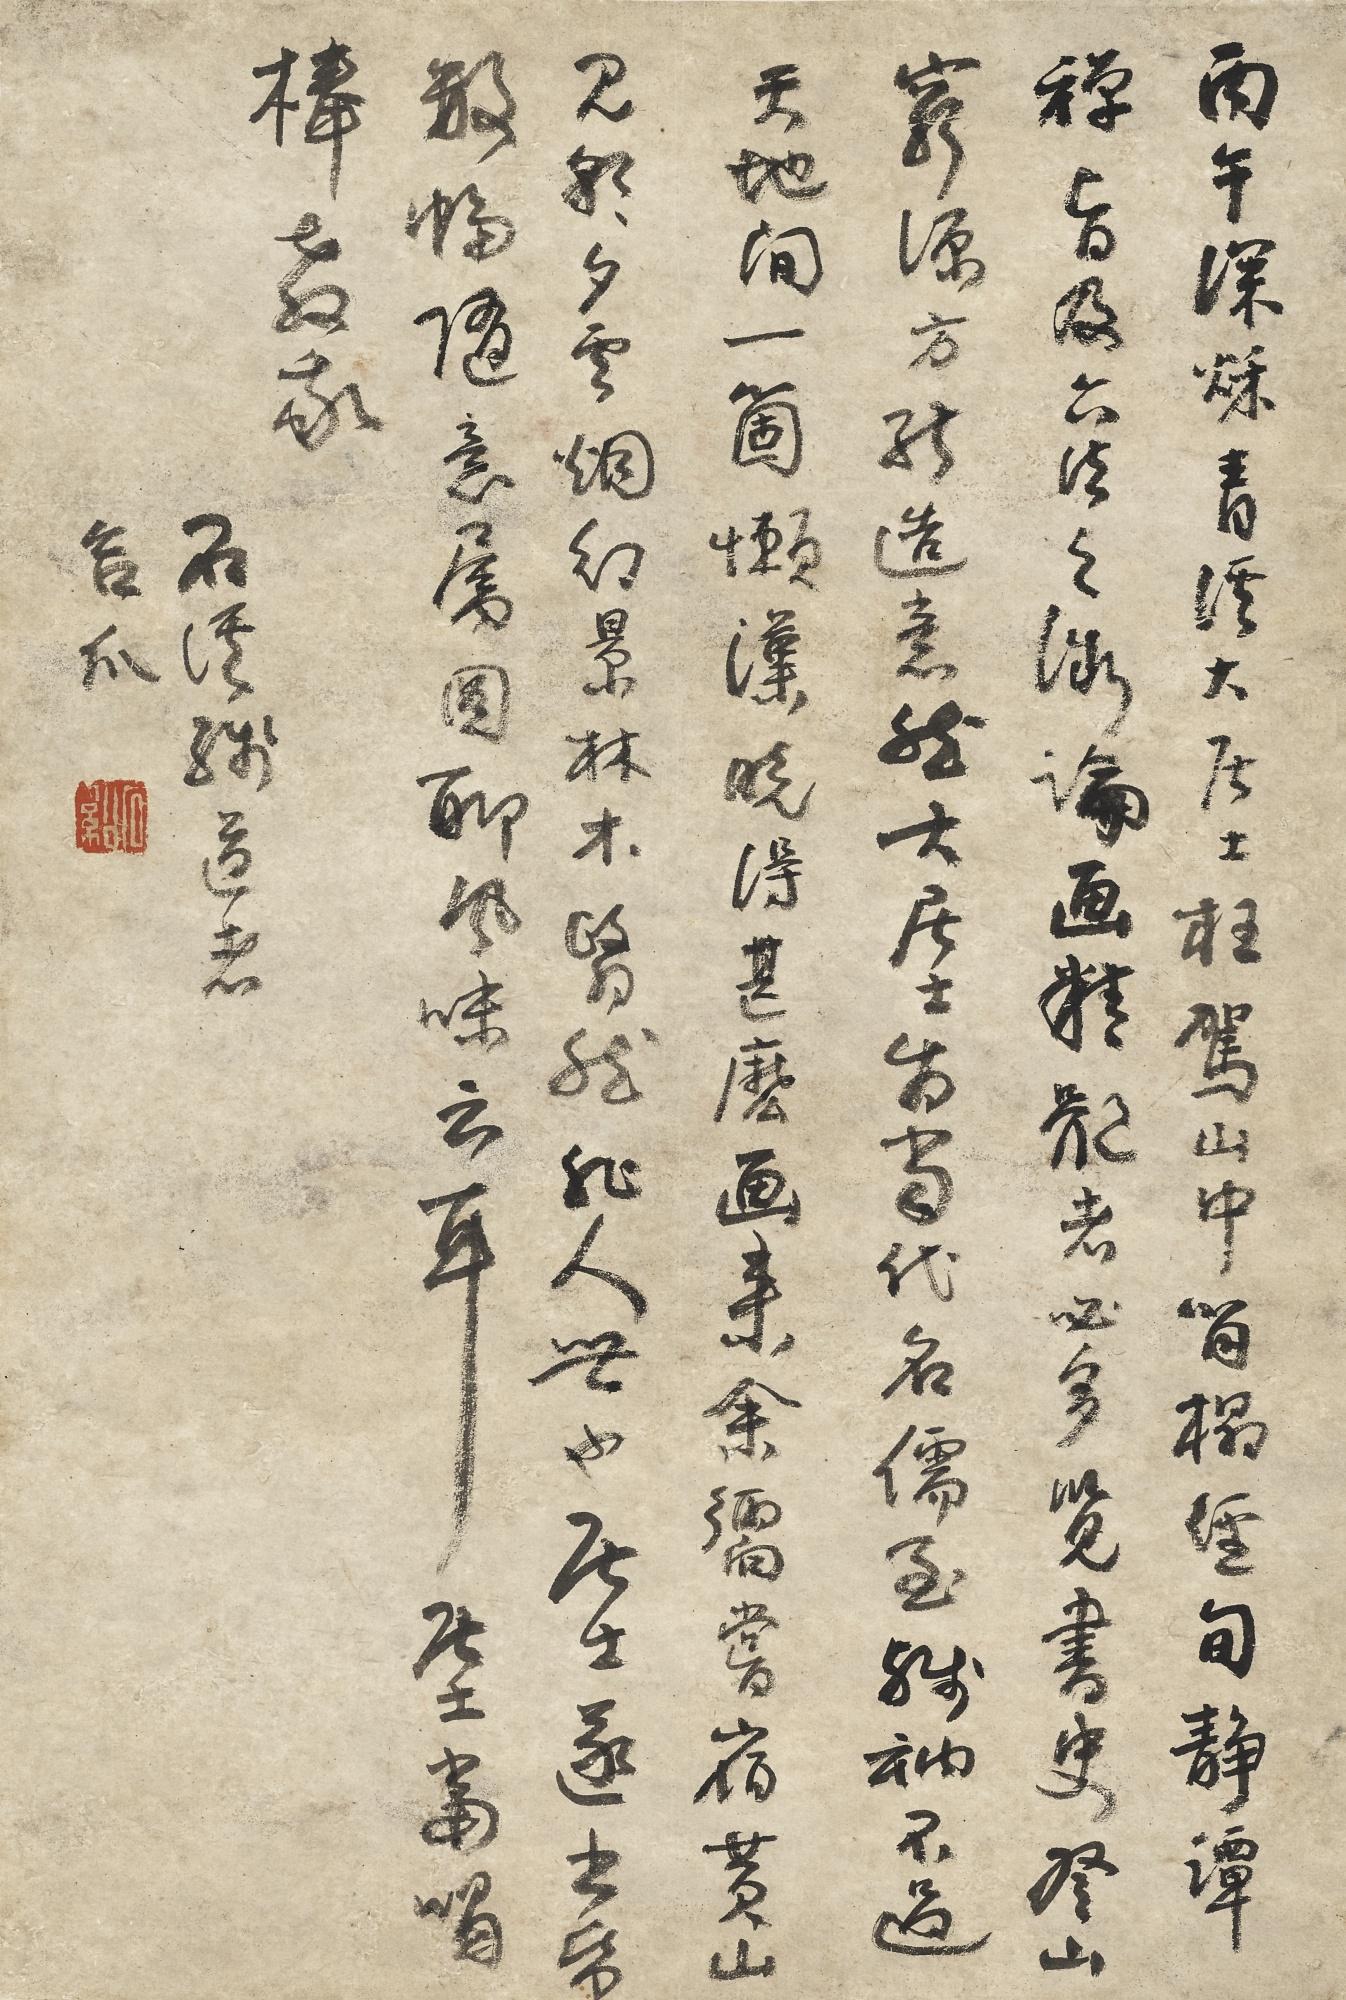 丙午深穐青溪大居士枉駕山中留榻經旬靜譚
禪旨及六法之微論画精髓者必多覽書史登山
窮源方能造意然大居士為當代名儒至殘衲不過
天地間一箇懶漢曉得甚麼画來余獨嘗宿黃山
見朝夕雲烟幻景林木翳然非人世也居士遂出紙
數幅隨意屬圖聊風味云耳居士當喟
棒教我
石溪殘道者
合爪